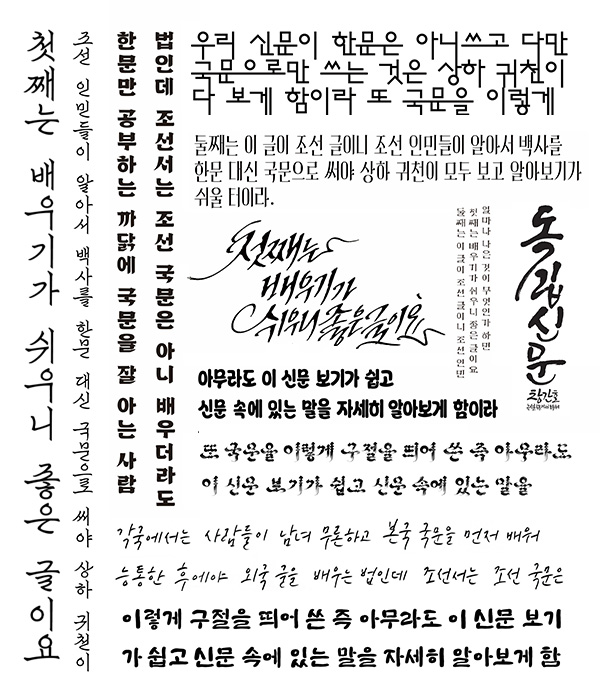 첫째는 배우기가 쉬우니 좋은 글이요
조선 인민들이 알아서 백사를 한문 대신 국문으로 써야 상하 귀천이
한문만 공부하는 까닭에 국문을 잘 아는 사람
법인데 조선서는 조선 국문은 아니 배우더라도
우리 신문이 한문은 아니쓰고 다만
국문으로만 쓰는 것은 상하 귀천이
다 보게 함이라 또 국문을 이렇게
둘째는 이 글이 조선 글이니 조선 인민들이 알아서 백사를
한문 대신 국문으로 써야 상하 귀천이 모두 보고 알아보기가
쉬울 터이라.
첫째는
배우기가
쉬우니 좋은 글이요
얼마나 나은 것이 무엇인가 하면
첫째는 배우기가 쉬우니 좋은 글이요
둘째는 이 글이 조선 글이니 조선 인민
독립신문
창간호
아무라도 이 신문 보기가 쉽고
신문 속에 있는 말을 자세히 알아보게 함이라
또 국문을 이렇게 구절을 띄어 쓴 즉 아무라도
이 신문 보기가 쉽고 신문 속에 있는 말을
각국에서는 사람들이 남녀 무론하고 본국 국문을 먼저 배워
능통한 후에야 외국 글을 배우는 법인데 조선서는 조선 국문은
이렇게 구절을 띄어 쓴 즉 아무라도 이 신문 보기
가 쉽고 신문 속에 있는 말을 자세히 알아보게 함